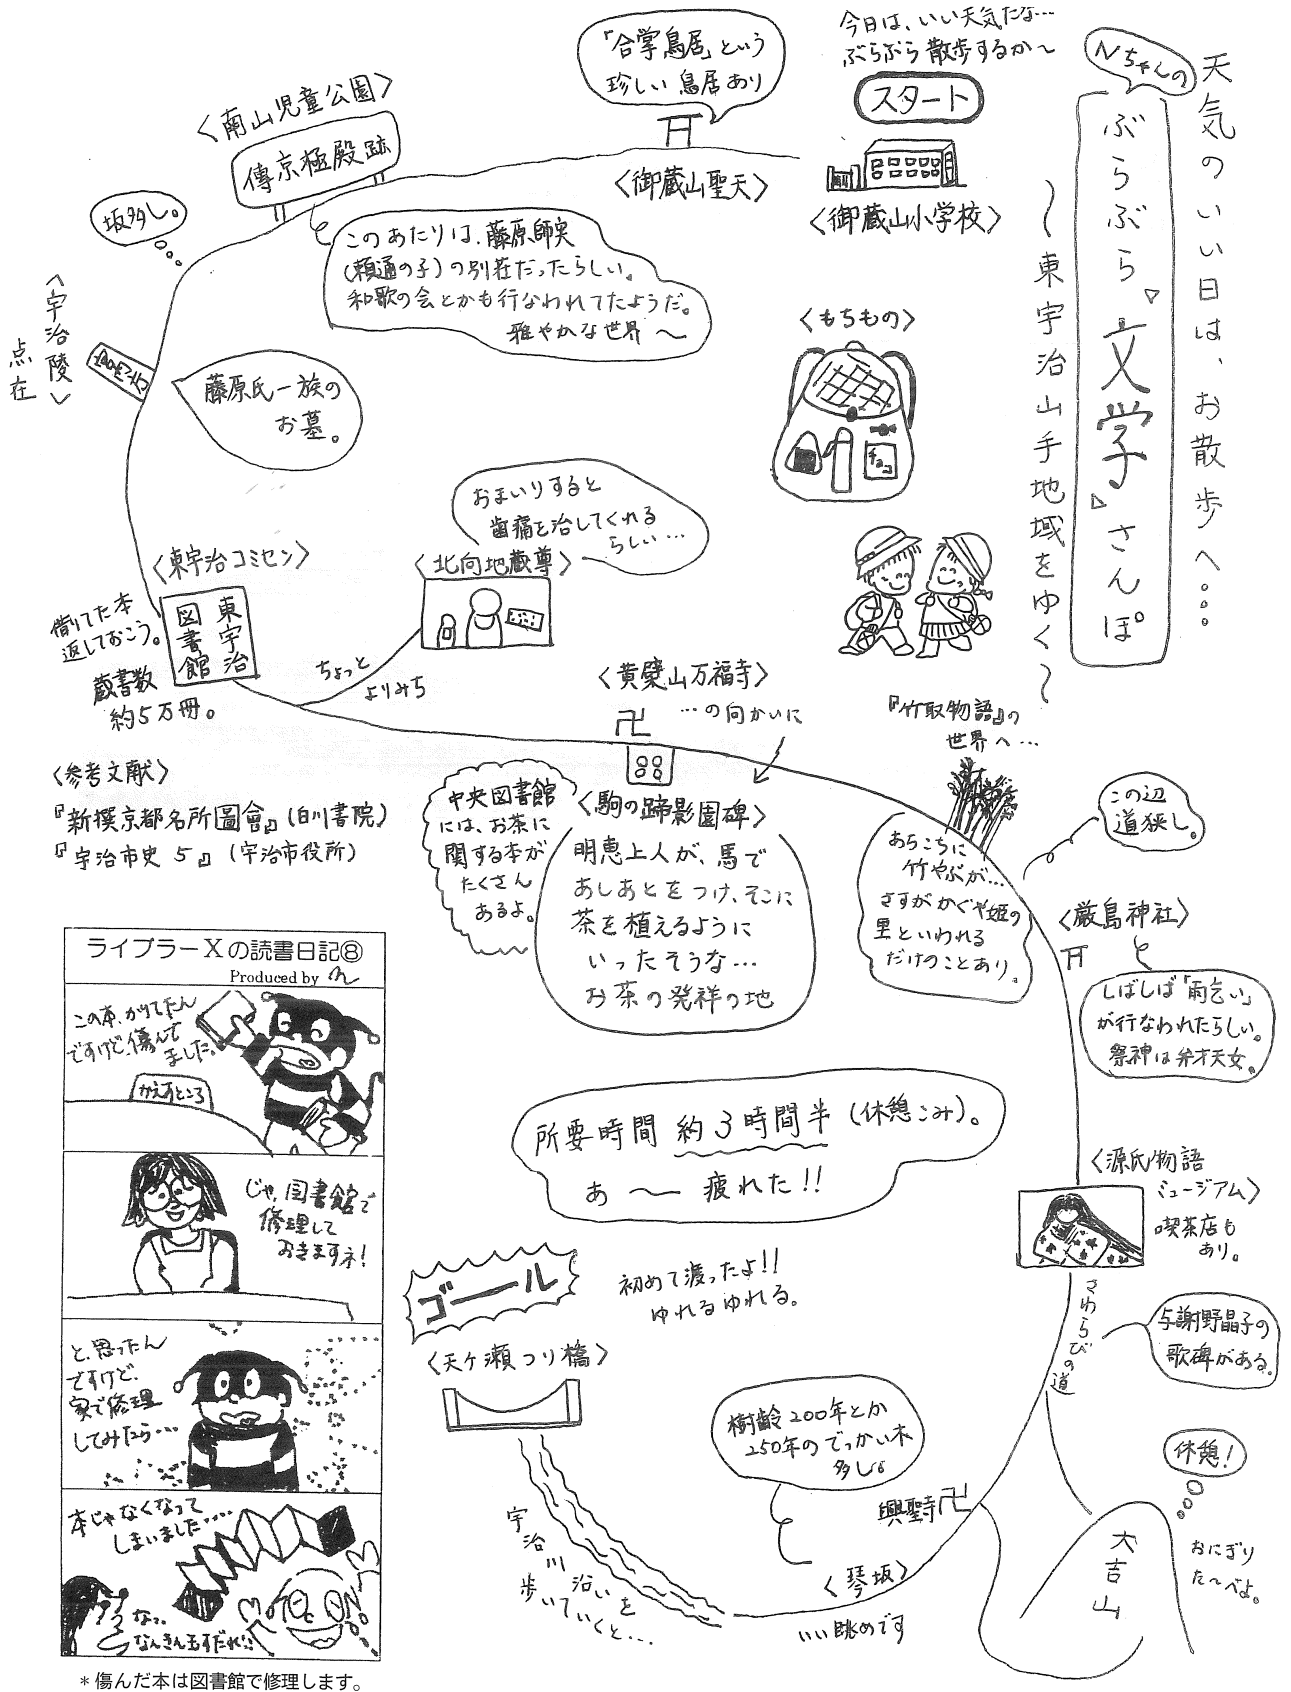 天気のいい日は、お散歩へ…
Nちゃんの
ぶらぶら“文学”さんぽ
〜東宇治山手地域をゆく〜
今日は、いい天気だな…
ぶらぶら散歩するか〜
スタート
〈御蔵山小学校〉
「合掌鳥居」という
珍しい鳥居あり
〈御蔵山聖天〉
〈南山児童公園〉
傳京極殿跡
このあたりは、藤原師実
(頼通の子)の別荘だったらしい。
和歌の会とかも行なわれてたようだ。
雅やかな世界〜
坂多し。
〈宇治陵〉
点在
藤原氏一族の
お墓。
〈もちもの〉
チョコ
〈東宇治コミセン〉
東宇治
図書館
借りてた本
返しておこう。
蔵書数
約5万冊。
おまいりすると
歯痛を治してくれる
らしい…
〈北向地蔵尊〉
ちょっと
よりみち
〈黄檗山万福寺〉
…の向かいに
〈駒の蹄影園碑〉
明恵上人が、馬で
あしあとをつけ、そこに
茶を植えるように
いったそうな…
お茶の発祥の地
中央図書館
には、お茶に
関する本が
たくさん
あるよ。
『竹取物語』の
世界へ…
あちこちに
竹やぶが…
さすがかぐや姫の
里といわれる
だけのことあり。
この辺
道狭し。
〈厳島神社〉
しばしば「雨乞い」
が行なわれたらしい。
祭神は弁才天女。
〈源氏物語
ミュージアム〉
喫茶店も
あり。
さわらびの道
与謝野晶子の
歌碑がある。
休憩!
大吉山
おにぎり
た〜べよ。
興聖寺
樹齢200年とか
250年のでっかい木
多し。
〈琴坂〉
いい眺めです
宇治川沿いを
歩いていくと…
〈天ヶ瀬つり橋〉
ゴール
初めて渡ったよ!!
ゆれるゆれる。
所要時間 約3時間半(休憩こみ)。
あ〜疲れた!!
〈参考文献〉
『新撰京都名所圖會』(白川書院)
『宇治市史 5』(宇治市役所)
ライブラーXの読書日記⑧
Produced by n
この本、かりてたん
ですけど、傷んで
ました。
かえすところ
じゃ、図書館で
修理して
おきますネ!
と、思ったん
ですけど、
家で修理
してみたら…
本じゃなくなって
しまいました……
なっ、
なんきんたますだれ!!
*傷んだ本は図書館で修理します。